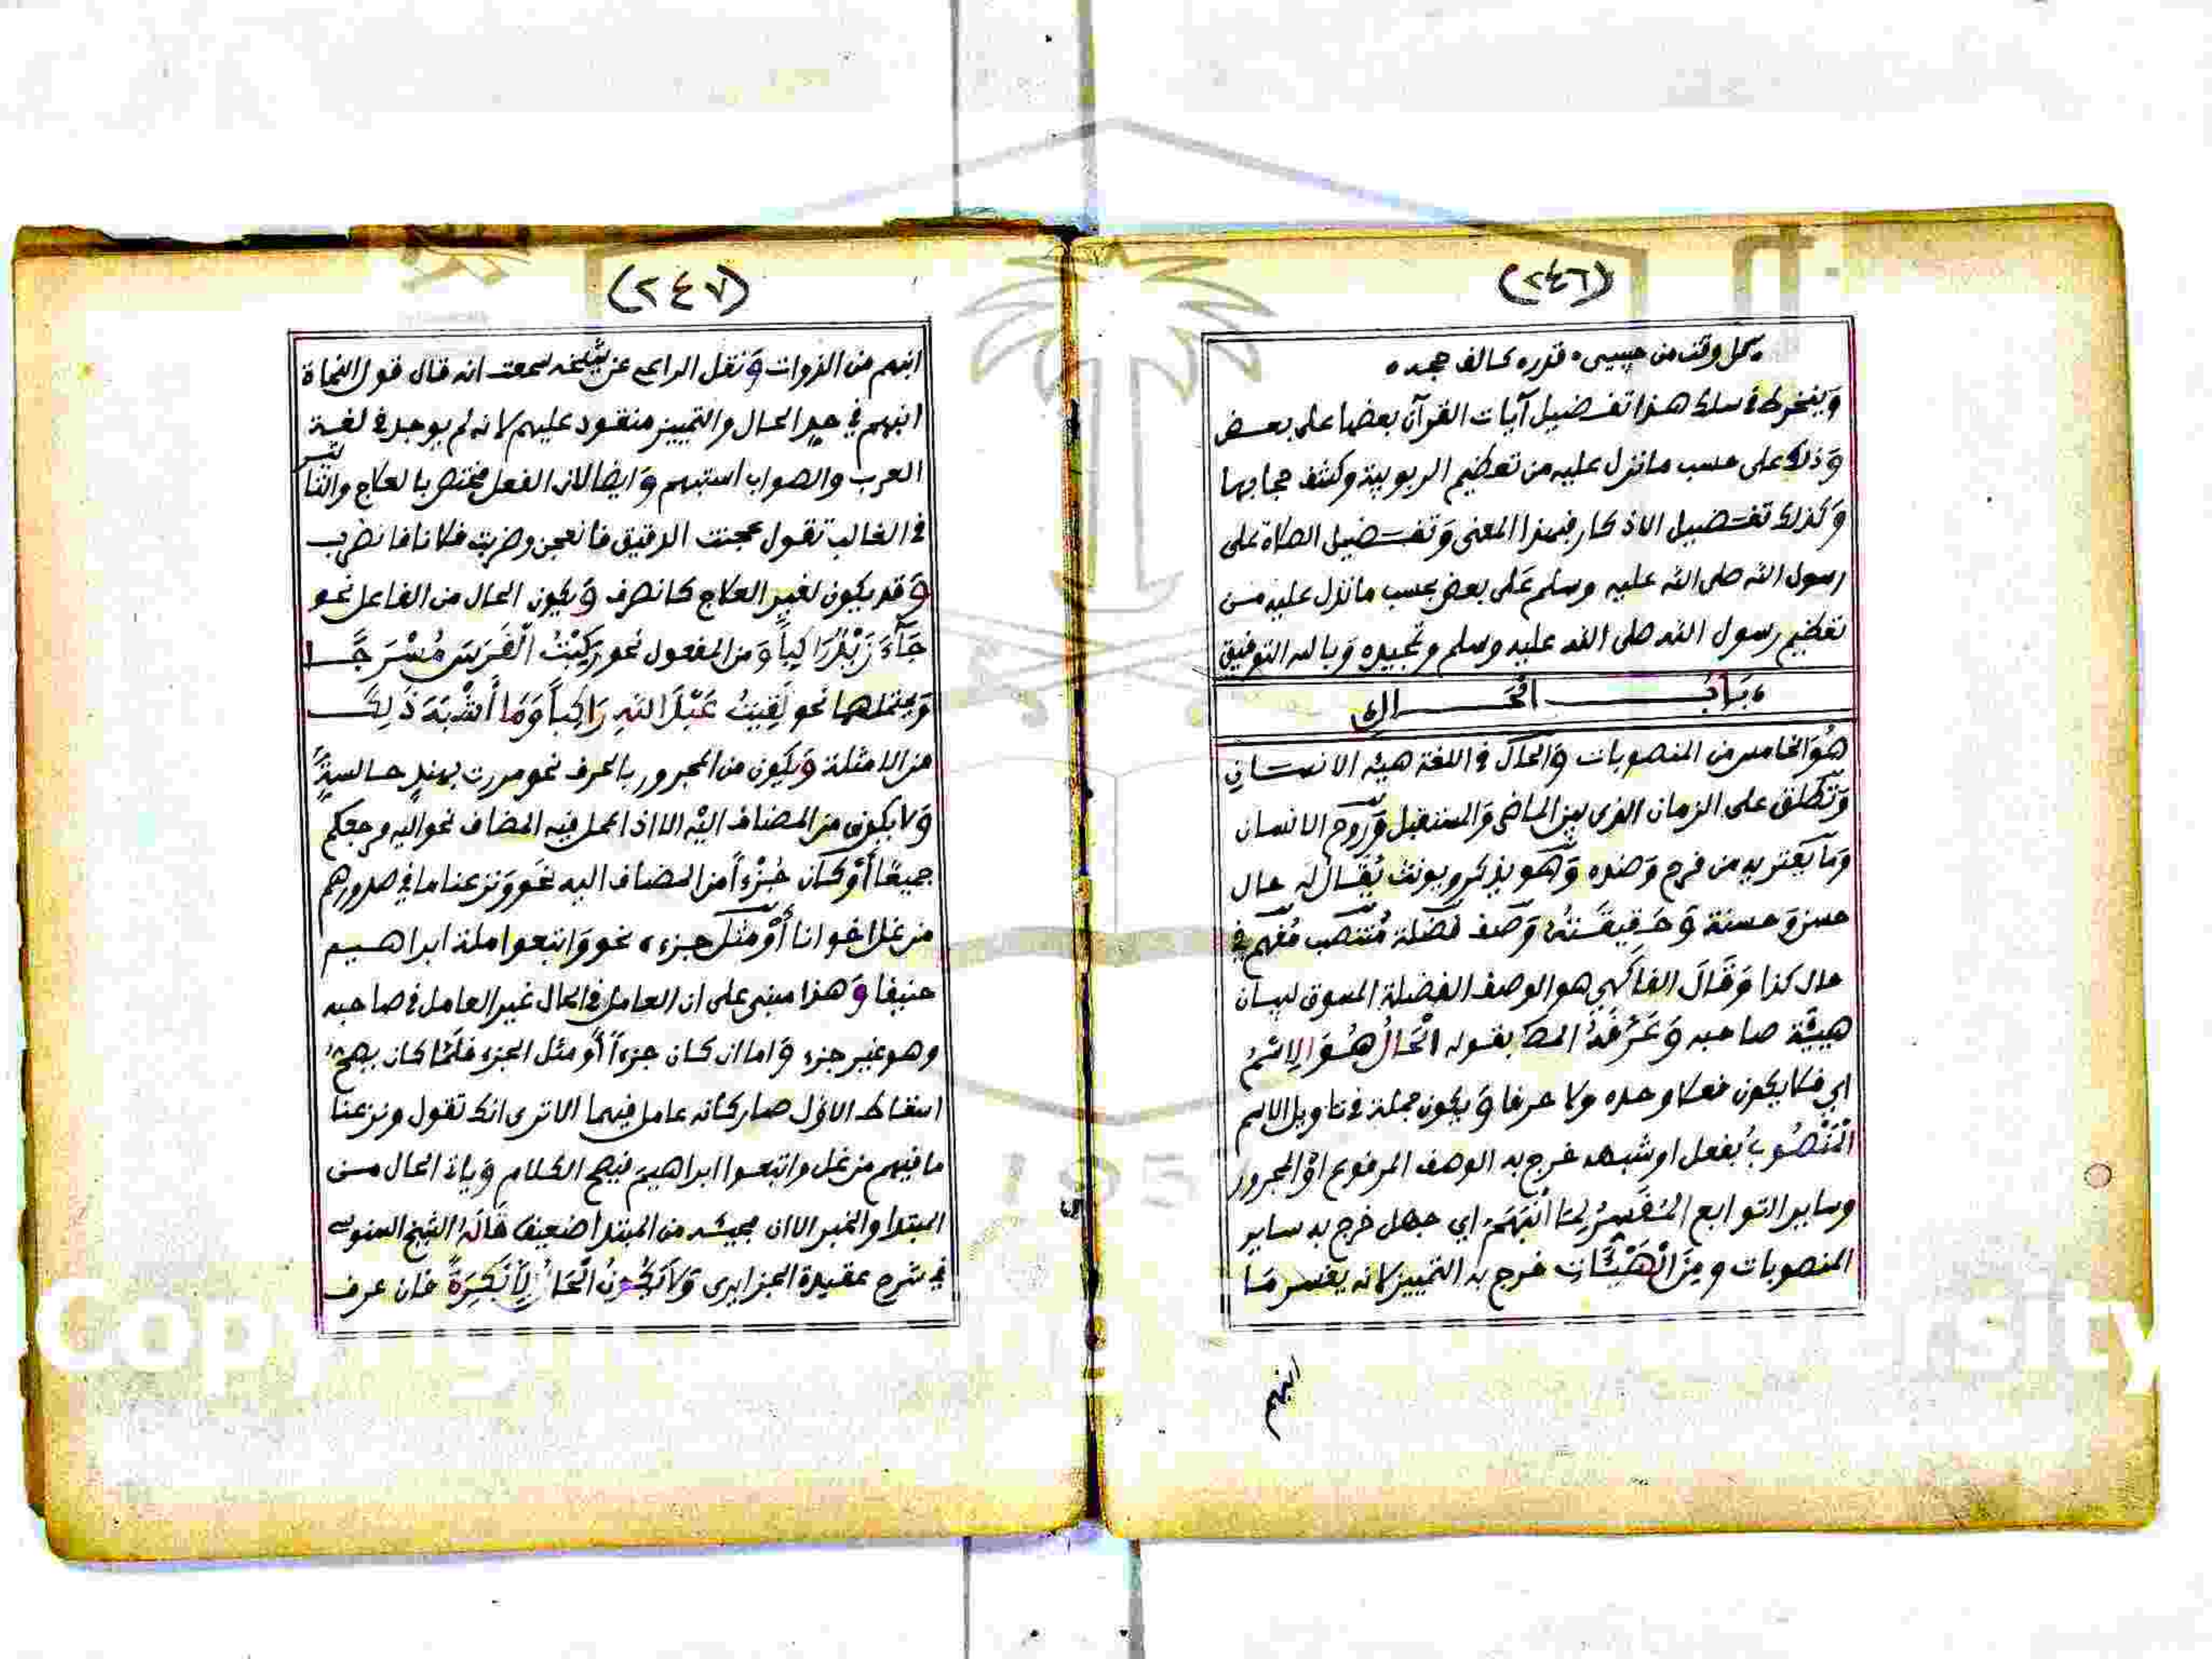 (٢٤٦)
كل وقت من حبيبي ۰ قدره كالف حجه ۰
وينخرط في سلك هذا تفضيل آيات القرآن بعضها على بعض
وذلك على حسب ما نزل عليه من تعظيم الربوبية وكشف حجابها
وكذلك تفضيل الاذكار فبهذا المعنى وتفضيل الصلاة على
رسول الله صلى الله عليه وسلم على بعض بحسب ما نزل عليه من
تعظيم رسول الله صلى الله عليه وسلم وتمجيده وبالله التوفيق
باب الحال
هُوَ الخامس من المنصوبات والحال في اللغة هيئة الانسان
وتطلق على الزمان الذي بين الماضي والمستقبل وروح الانسان
وما يعتريه من فرح وضده وهو يذكر ويونث يُقال له حال
حسن وحسنة وحقيقته وصف فضلة منتصب مفهم في
حال كذا وقال الفاكهي هو الوصف الفضلة المسوق لبيان
هيئة صاحبه وعَرَّفَهُ المص بقوله الْحَالُ هُوَ الِاسْمُ
اي فلا يكون فعلا وحده ولا حرفا ويكون جملة في تاويل الاسم
الْمَنْصُوبُ بفعل او شبهه خرج به الوصف المرفوع او المجرور
وساير التوابع المُفَسِّرُ لِمَا انْبَهَمَ اي جهل خرج به ساير
المنصوبات ومِنَ الْهَيْئَاتِ خرج به التمييز لانه يفسر ما
انبهم
(٢٤٧)
انبهم من الذوات ونقل الراعي عن شيخه سمعت انه قال قول النحاة
انبهم في حد الحال والتمييز منقود عليهم لانه لم يوجد في لغة
العرب والصواب استبهم وايضا لان الفعل مختص بالعلاج والتاثير
في الغالب تقول عجنت الدقيق فانعجن وضربت فلانا فانضرب
وقد يكون لغير العلاج كانصرف ويكون الحال من الفاعل نحو
جَآءَ زَيْدٌ رَاكِباً ومن المفعول نحو رَكِبْتُ الْفَرَسَ مُسْرَجًا
ويحتملهما نحو لَقِيتُ عَبْدَ اللهِ رَاكِباً وَمَا أَشْبَهَ ذَلِكَ
من الامثلة ويكون من المجرور بالحرف نحو مررت بهندٍ جالسةً
ولا يكون من المضاف اليه الا اذا عمل فيه المضاف نحو اليه مرجعكم
جميعًا أو كان جُزْءاً من المضاف اليه نحو ونزعنا ما في صدورهم
من غل اخوانا أو مثل جزءه نحو واتبعوا ملة ابراهيم
حنيفا وهذا مبني على ان العامل في الحال غير العامل في صاحبه
وهو غير جزء واما ان كان جزءاً أو مثل الجزء فلمّا كان يصح
اسقاط الاول صار كانه عامل فيهما الا ترى انك تقول ونزعنا
ما فيهم من غل واتبعوا ابراهيم فيصح الكلام وياتي الحال من
المبتدا والخبر الا ان مجيئه من المبتدا ضعيف قاله الشيخ السنوسي
في شرح عقيدة الجزايري وَلاَ يَكُونُ الْحَالُ إِلاَّ نَكِرَةً فان عرف